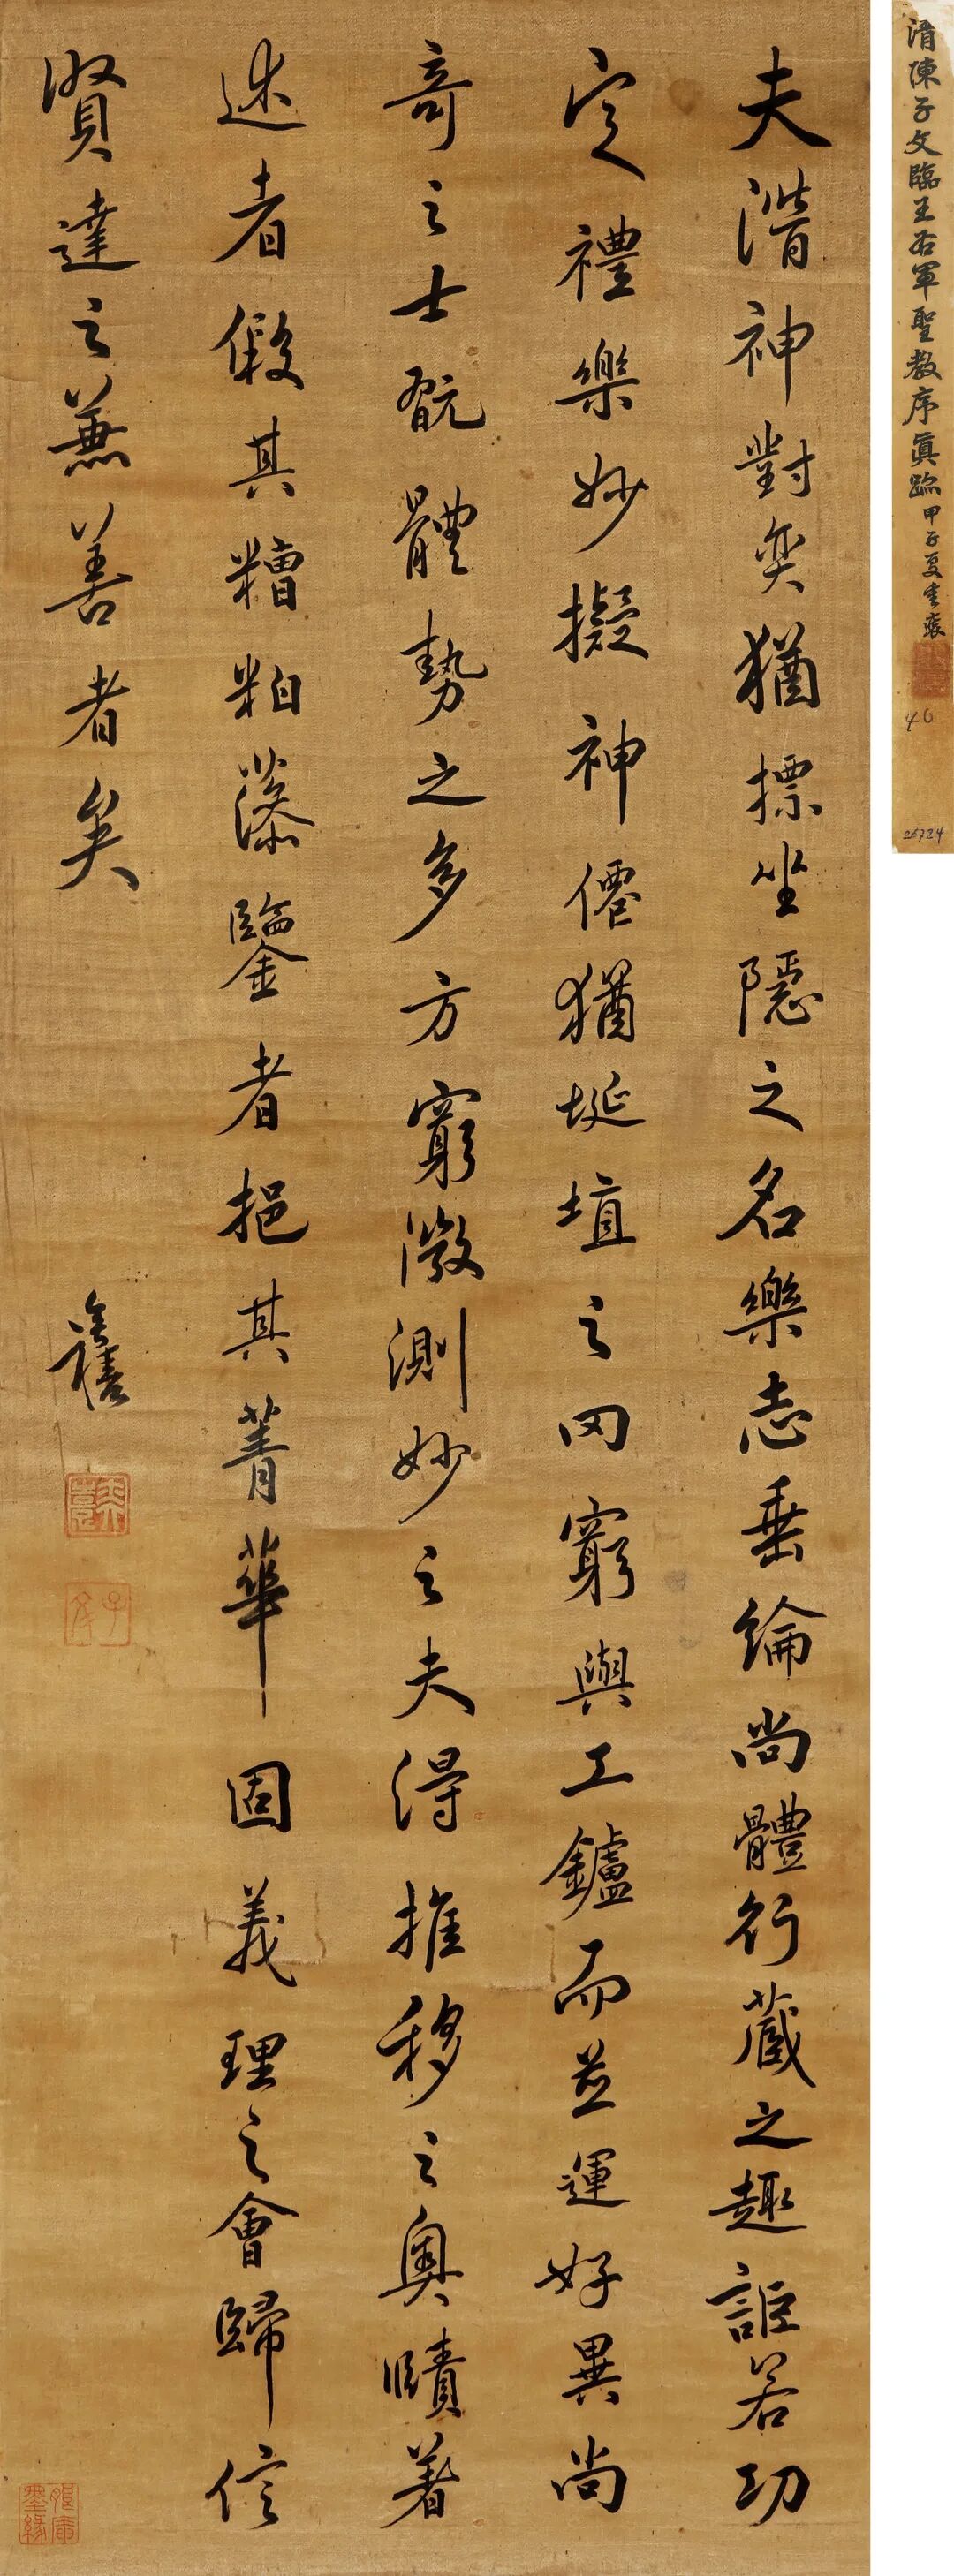 夫潛神對奕猶摽坐隱之名樂志垂綸尚體行藏之趣詎若功
定禮樂妙擬神僊猶埏埴之罔窮與工鑪而並運好異尚
奇之士翫體勢之多方窮微測妙之夫得推移之奧賾著
述者假其糟粕藻鑒者挹其菁華固義理之會歸信
賢達之兼善者矣
奕禧
子文
清陳子文臨王右軍聖教序眞跡甲子夏重裝
46
26724